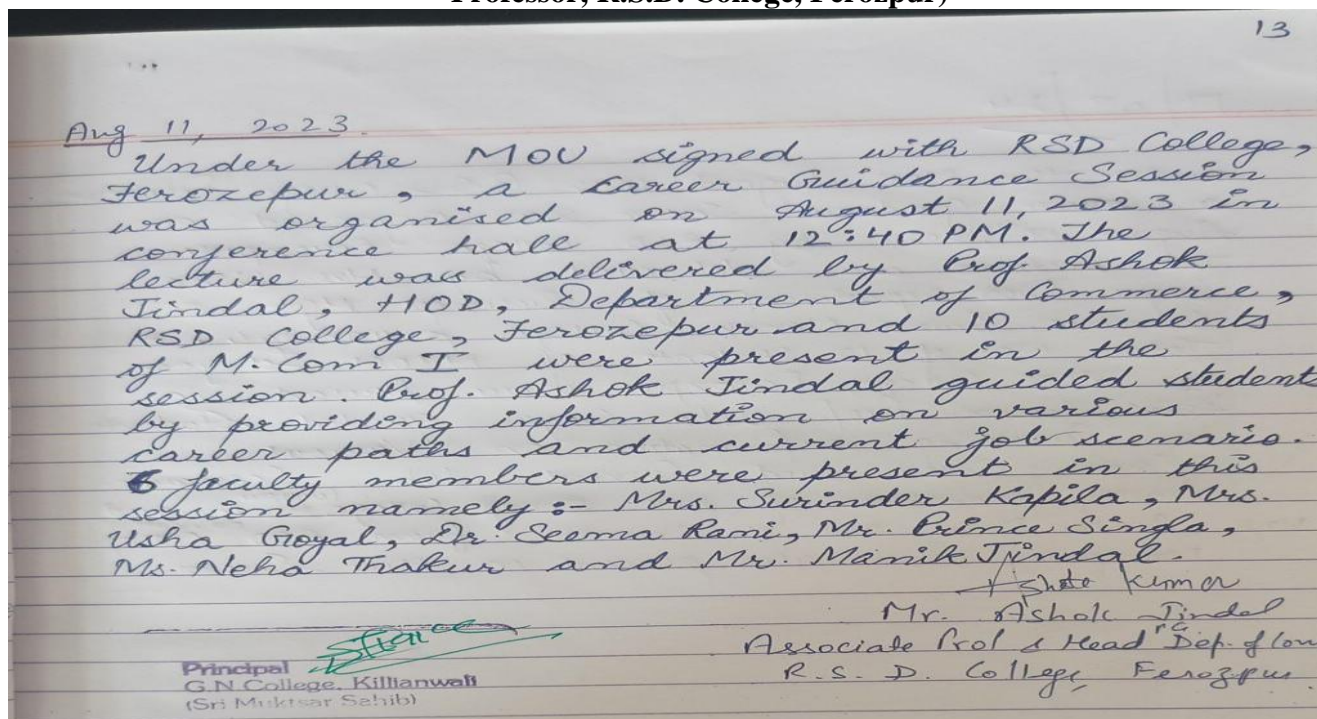 Professor, R.S.D. College, Ferozpur)
13
Aug 11, 2023.
Under the MOU signed with RSD College,
Ferozepur, a Career Guidance Session
was organised on August 11, 2023 in
conference hall at 12:40 PM. The
lecture was delivered by Prof. Ashok
Jindal, HOD, Department of Commerce,
RSD College, Ferozepur and 10 students
of M. Com I were present in the
session. Prof. Ashok Jindal guided students
by providing information on various
career paths and current job scenario.
6 faculty members were present in this
session namely :- Mrs. Surinder Kapila, Mrs.
Usha Goyal, Dr. Seema Rani, Mr. Prince Singla,
Ms. Neha Thakur and Mr. Manik Jindal.
Kumar
Mr. Ashok Jindal
Associate Prof & Head Dep. of Com
R. S. D. College, Ferozpur
Principal
G.N College, Killianwali
(Sri Muktsar Sahib)